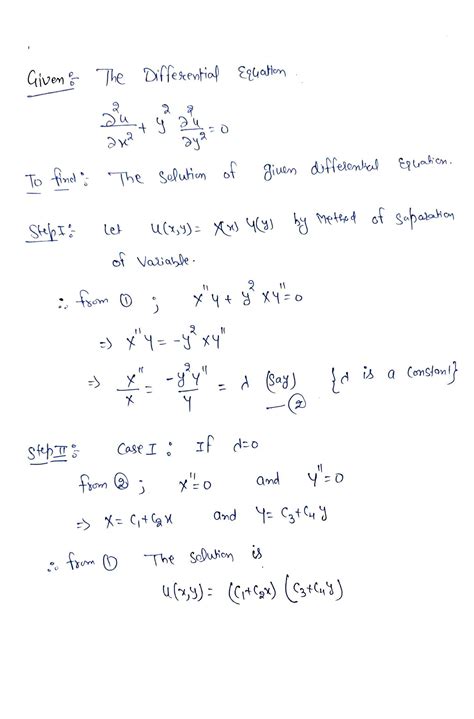 Given: The Differential Equation.
∂²u/∂x² + y² ∂²u/∂y² = 0
To find: The solution of given differential Equation.
Step I: Let u(x,y) = X(x) Y(y) by method of separation
of Variable.
∴ from ① ; X''Y + y² XY'' = 0
⇒ X''Y = -y² XY''
⇒ X''/X = -y²Y''/Y = λ (Say) {λ is a constant}
—②
Step II: Case I : If λ=0
from ② ; X''=0 and Y''=0
⇒ X = C₁+C₂x and Y = C₃+C₄y
∴ from ① The solution is
u(x,y) = (C₁+C₂x) (C₃+C₄y)